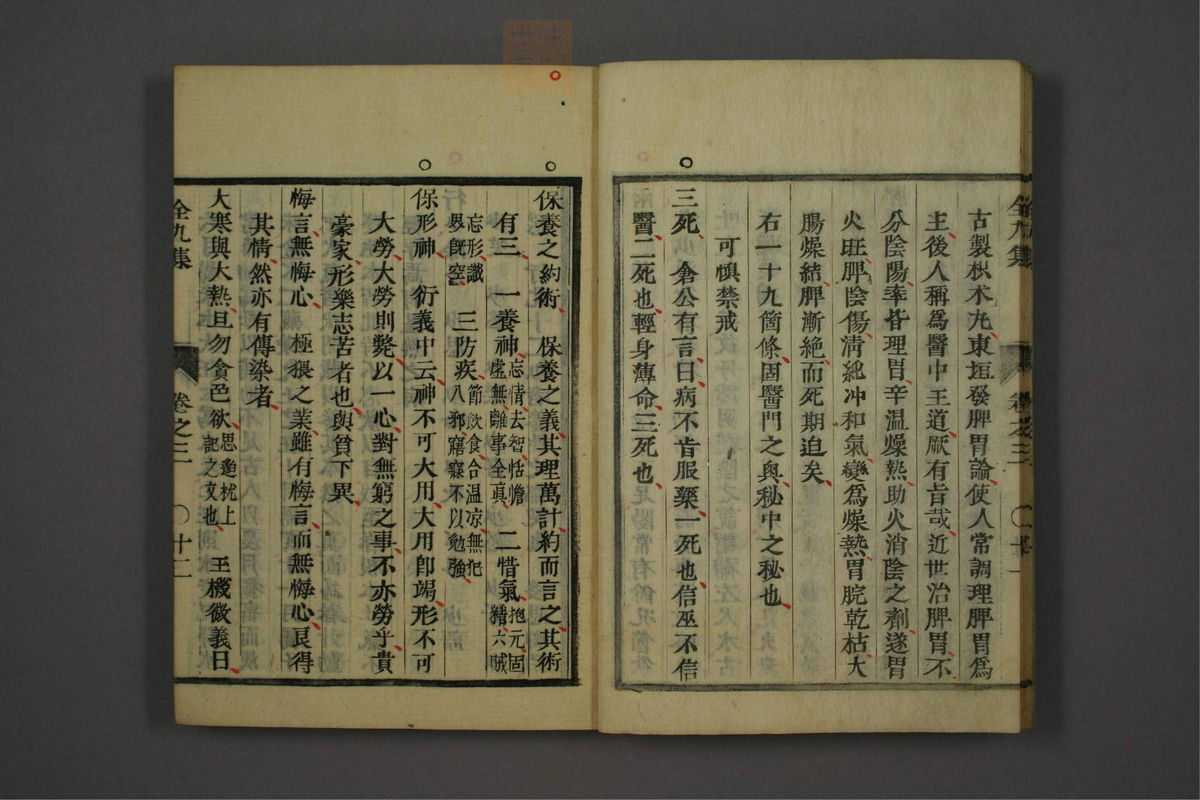 古製枳朮丸東垣發脾胃論使人常調理脾胃爲
主後人稱爲醫中王道厥有旨哉近世治脾胃不
分陰陽率皆理胃辛温燥熱助火消陰之劑遂胃
火旺脾陰傷清純冲和氣變爲燥熱胃脘乾枯大
腸燥結脾漸絶而死期迫矣
右一十九箇條固醫門之奥秘中之秘也
可慎禁戒
三死 倉公有言曰病不肯服藥一死也信巫不信
醫二死也輕身薄命三死也
全九集 卷之三 〇十一
保養之約術 保養之義其理萬計約而言之其術
有三 一養神 忘情去智恬憺虚無離事全眞 二惜氣 抱元固精六賊
忘形識界既空 三防疾 節飲食合温凉無犯八邪寤寐不以勉強
保形神 衍義中云神不可大用大用卽竭形不可
大勞大勞則斃以一心對無窮之事不亦勞乎貴
豪家形樂志苦者也與貧下異
悔言無悔心 極猥之業雖有悔言而無悔心良得
其情然亦有傳染者
大寒與大熱且勿食色欲 思邈枕上記之文也 玉機微義曰
全九集 卷之三 〇十二